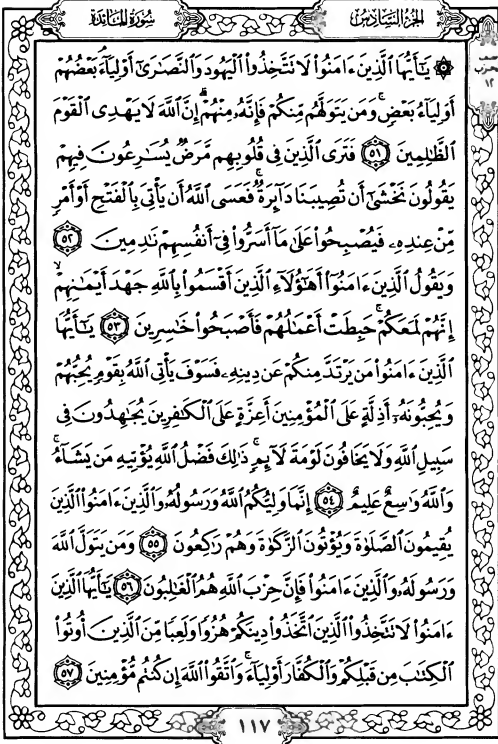 الجزء السادس
سورة المائدة
نصف
حزب
١٢
۞ يَـٰٓأَيُّهَا ٱلَّذِينَ ءَامَنُوا۟ لَا تَتَّخِذُوا۟ ٱلْيَهُودَ وَٱلنَّصَـٰرَىٰٓ أَوْلِيَآءَ ۘ بَعْضُهُمْ
أَوْلِيَآءُ بَعْضٍ ۚ وَمَن يَتَوَلَّهُم مِّنكُمْ فَإِنَّهُۥ مِنْهُمْ ۗ إِنَّ ٱللَّهَ لَا يَهْدِى ٱلْقَوْمَ
ٱلظَّـٰلِمِينَ ٥١ فَتَرَى ٱلَّذِينَ فِى قُلُوبِهِم مَّرَضٌ يُسَـٰرِعُونَ فِيهِمْ
يَقُولُونَ نَخْشَىٰٓ أَن تُصِيبَنَا دَآئِرَةٌ ۚ فَعَسَى ٱللَّهُ أَن يَأْتِىَ بِٱلْفَتْحِ أَوْ أَمْرٍ
مِّنْ عِندِهِۦ فَيُصْبِحُوا۟ عَلَىٰ مَآ أَسَرُّوا۟ فِىٓ أَنفُسِهِمْ نَـٰدِمِينَ ٥٢
وَيَقُولُ ٱلَّذِينَ ءَامَنُوٓا۟ أَهَـٰٓؤُلَآءِ ٱلَّذِينَ أَقْسَمُوا۟ بِٱللَّهِ جَهْدَ أَيْمَـٰنِهِمْ ۙ
إِنَّهُمْ لَمَعَكُمْ ۚ حَبِطَتْ أَعْمَـٰلُهُمْ فَأَصْبَحُوا۟ خَـٰسِرِينَ ٥٣ يَـٰٓأَيُّهَا
ٱلَّذِينَ ءَامَنُوا۟ مَن يَرْتَدَّ مِنكُمْ عَن دِينِهِۦ فَسَوْفَ يَأْتِى ٱللَّهُ بِقَوْمٍ يُحِبُّهُمْ
وَيُحِبُّونَهُۥٓ أَذِلَّةٍ عَلَى ٱلْمُؤْمِنِينَ أَعِزَّةٍ عَلَى ٱلْكَـٰفِرِينَ يُجَـٰهِدُونَ فِى
سَبِيلِ ٱللَّهِ وَلَا يَخَافُونَ لَوْمَةَ لَآئِمٍ ۚ ذَٰلِكَ فَضْلُ ٱللَّهِ يُؤْتِيهِ مَن يَشَآءُ ۚ
وَٱللَّهُ وَٰسِعٌ عَلِيمٌ ٥٤ إِنَّمَا وَلِيُّكُمُ ٱللَّهُ وَرَسُولُهُۥ وَٱلَّذِينَ ءَامَنُوا۟ ٱلَّذِينَ
يُقِيمُونَ ٱلصَّلَوٰةَ وَيُؤْتُونَ ٱلزَّكَوٰةَ وَهُمْ رَٰكِعُونَ ٥٥ وَمَن يَتَوَلَّ ٱللَّهَ
وَرَسُولَهُۥ وَٱلَّذِينَ ءَامَنُوا۟ فَإِنَّ حِزْبَ ٱللَّهِ هُمُ ٱلْغَـٰلِبُونَ ٥٦ يَـٰٓأَيُّهَا ٱلَّذِينَ
ءَامَنُوا۟ لَا تَتَّخِذُوا۟ ٱلَّذِينَ ٱتَّخَذُوا۟ دِينَكُمْ هُزُوًا وَلَعِبًا مِّنَ ٱلَّذِينَ أُوتُوا۟
ٱلْكِتَـٰبَ مِن قَبْلِكُمْ وَٱلْكُفَّارَ أَوْلِيَآءَ ۚ وَٱتَّقُوا۟ ٱللَّهَ إِن كُنتُم مُّؤْمِنِينَ ٥٧
١١٧